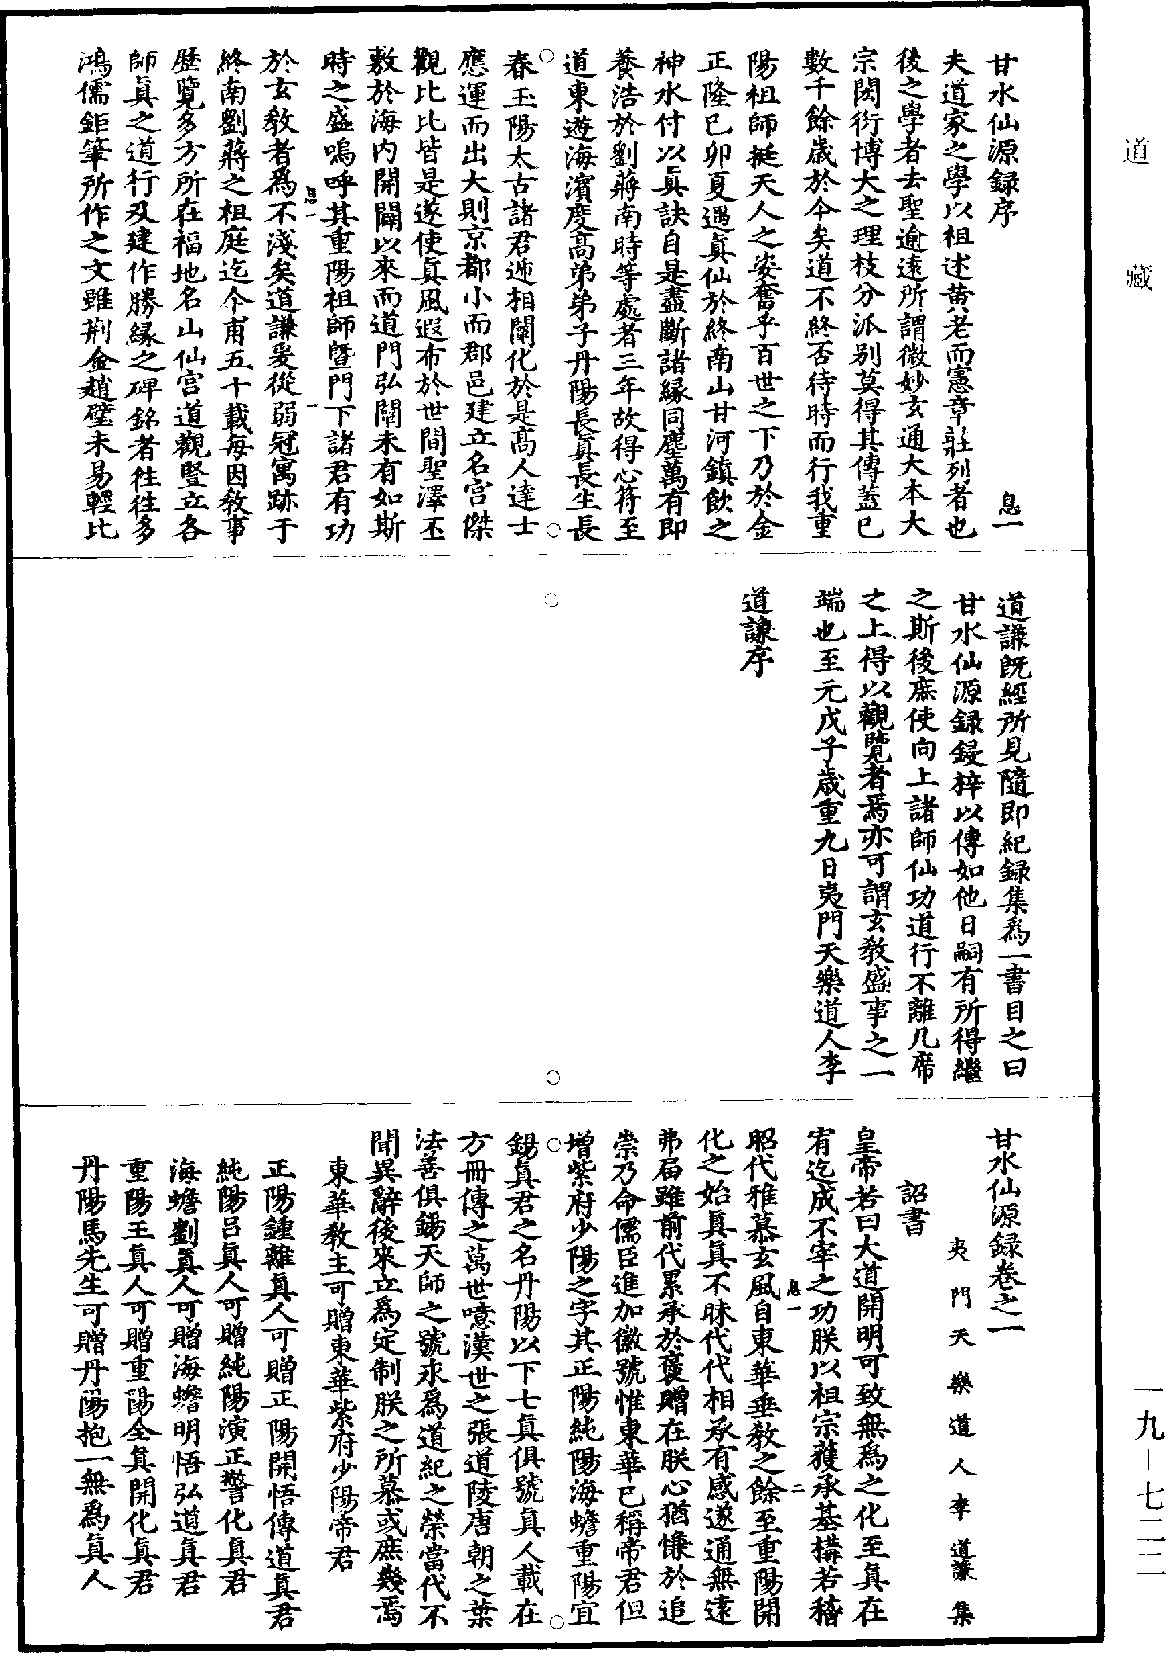 道藏
甘水仙源録序
息一
夫道家之學以祖述黄老而憲章莊列者也
後之學者去聖逾遠所謂微妙玄通大本大
宗閎衍博大之理枝分派别莫得其傳蓋已
數千餘歲於今矣道不終否待時而行我重
陽祖師挺天人之姿奮乎百世之下乃於金
正隆已卯夏遇真仙於終南山甘河鎮飲之
神水付以真訣自是盡斷諸縁同塵萬有即
養浩於劉蔣南時等處者三年故得心符至
道東遊海濱度高弟弟子丹陽長真長生長
春玉陽太古諸君遞相闡化於是高人達士
應運而出大則京都小而郡邑建立名宫傑
觀比比皆是遂使真風遐布於世間聖澤丕
敷於海内開闢以來而道門弘闡未有如斯
時之盛嗚呼其重陽祖師暨門下諸君有功
息一
一
於玄教者爲不淺矣道謙爰從弱冠寓跡于
終南劉蔣之祖庭迄今甫五十載每因教事
歷覽多方所在福地名山仙宫道觀竪立各
師真之道行及建作勝縁之碑銘者徃徃多
鴻儒鉅筆所作之文雖荆金趙璧未易輕比
道謙既經所見隨即紀録集爲一書目之曰
甘水仙源録鋟梓以傳如他日嗣有所得繼
之斯後庶使向上諸師仙功道行不離几席
之上得以觀覽者焉亦可謂玄教盛事之一
端也至元戊子歲重九日夷門天樂道人李
道謙序
甘水仙源録卷之一
夷門天樂道人李道謙集
詔書
皇帝若曰大道開明可致無爲之化至真在
宥迄成不宰之功朕以祖宗獲承基構若稽
息一
二
昭代雅慕玄風自東華垂教之餘至重陽開
化之始真真不昧代代相承有感遂通無遠
弗届雖前代累承於褒贈在朕心猶慊於追
崇乃命儒臣進加徽號惟東華已稱帝君但
增紫府少陽之字其正陽純陽海蟾重陽宜
錫真君之名丹陽以下七真俱號真人載在
方冊傳之萬世噫漢世之張道陵唐朝之葉
法善俱錫天師之號永爲道紀之榮當代不
聞異辭後來立爲定制朕之所慕或庶幾焉
東華教主可贈東華紫府少陽帝君
正陽鍾離真人可贈正陽開悟傳道真君
純陽吕真人可贈純陽演正警化真君
海蟾劉真人可贈海蟾明悟弘道真君
重陽王真人可贈重陽全真開化真君
丹陽馬先生可贈丹陽抱一無爲真人
一九—七二二